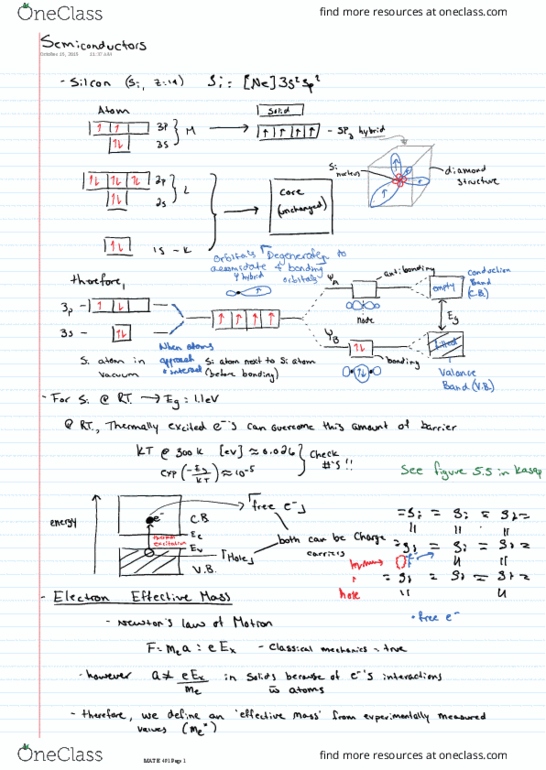 OneClass
find more resources at oneclass.com
Semiconductors
October 23, 2015 11:37 AM
- Silcon (Si, Z=14) Si = [Ne] 3s² 3p²
Atom
Solid
3p
3s
M
- SP3 hybrid
Si
diamond structure
2p
2s
L
Core (unchanged)
1s - K
Orbitals
Degenerate
4 bonding orbitals
hybrid
therefore,
ψA
antibonding
empty
Conduction Band (C.B.)
3p -
node
Eg
3s -
ψB
bonding
filled
Valance Band (V.B.)
Si atom in vacuum
When atoms approach + interact
Si atom next to Si atom (before bonding)
- For Si @ RT. → Eg = 1.1eV
@ RT, Thermally excited e⁻'s can overcome this amount of barrier
KT @ 300 K [eV] ≈ 0.026
exp (-Eg/KT) ≈ 10⁻⁵
Check #'s!!
See figure 5.5 in Kasap
energy
e⁻
C.B.
Ec
thermal excitation
Ev
V.B.
free e⁻s
Holes
both can be Charge carriers
= Si = Si = Si =
= Si = Si = Si =
= Si = Si = Si =
hole
• free e⁻
- Electron Effective Mass
- Newton's law of Motion
F = Mea = eEx - Classical mechanics - true
- however a ≠ eEx/Me in solids because of e⁻'s interactions w atoms
- therefore, we define an 'effective mass' from experimentally measured values (me*)
MATE 401 Page 1
OneClass
find more resources at oneclass.com